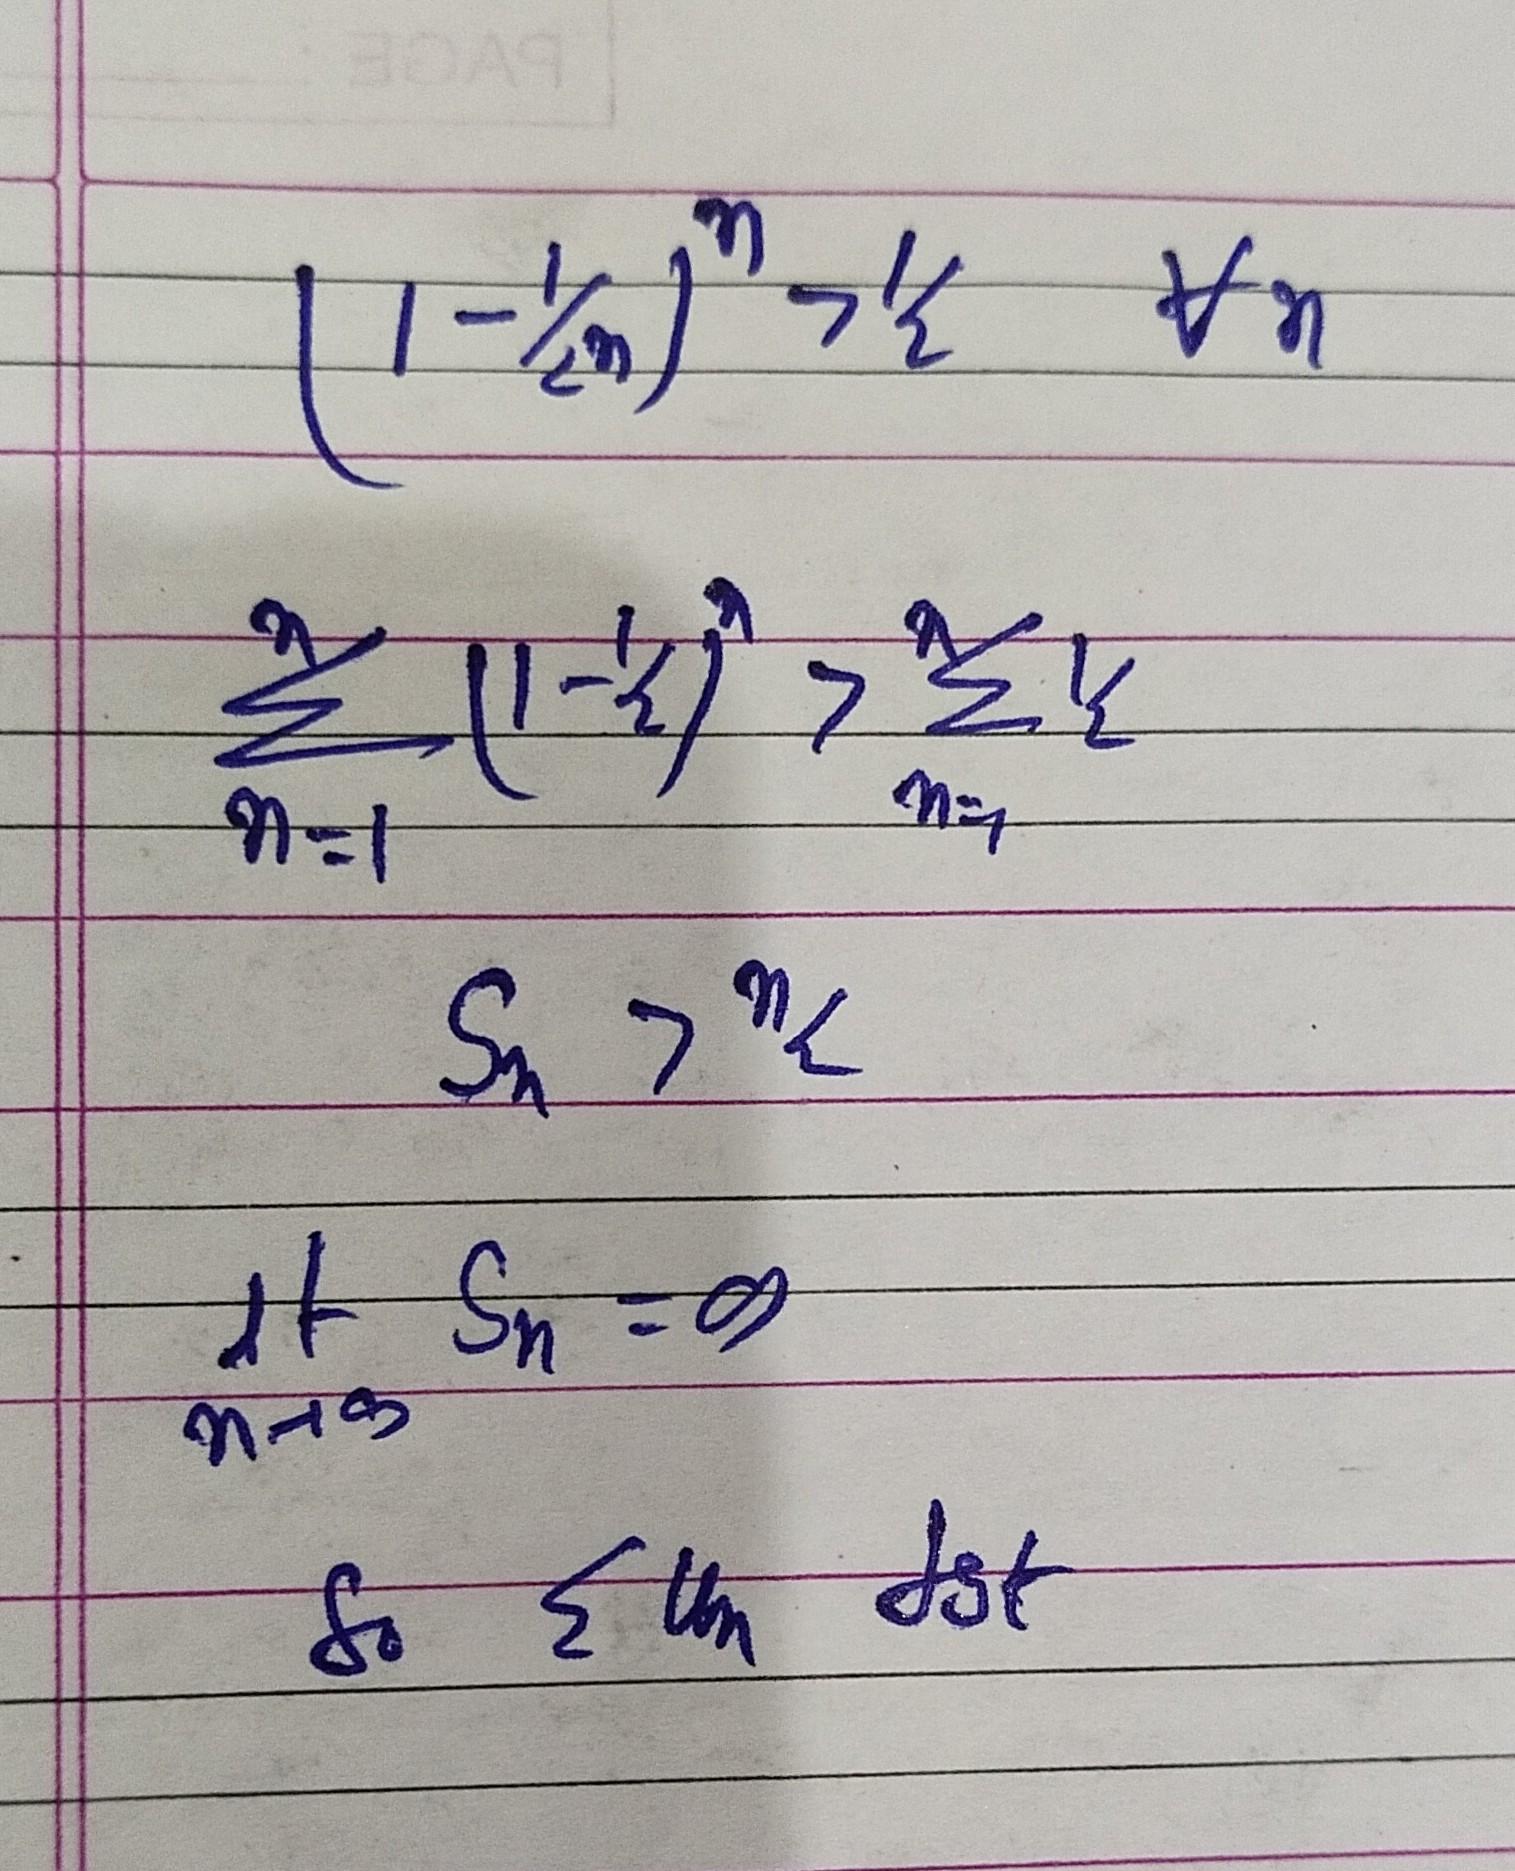 PAGE :
(1 - 1/2n)^n > 1/2 ∀ n
∑_{n=1}^{n} (1 - 1/2)^n > ∑_{n=1}^{n} 1/2
Sn > n/2
lt_{n→∞} Sn = ∞
So ∑ Un dgt